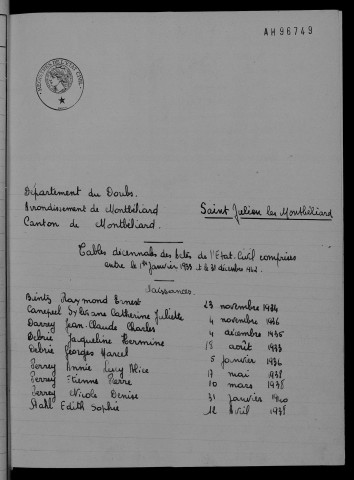 AH96749
Département du Doubs.
Arrondissement de Montbéliard
Canton de Montbéliard.
Saint Julien les Montbéliard
Tables décennales des Actes de l'Etat-Civil comprises
entre le 1er Janvier 1933 et le 31 décembre 1942.
Naissances.
Raymond Ernest 23 novembre 1934
Canepel Sylviane Catherine Juliette 4 novembre 1936
Darrey Jean-Claude Charles 4 décembre 1935
Debrie Jacqueline Hermine 18 août 1933
Debrie Georges Marcel 5 janvier 1936
Annie Lucy Alice 17 mai 1938
Etienne Pierre 10 mars 1938
Nicole Denise 31 janvier 1940
Stahl Edith Sophie 12 avril 1938